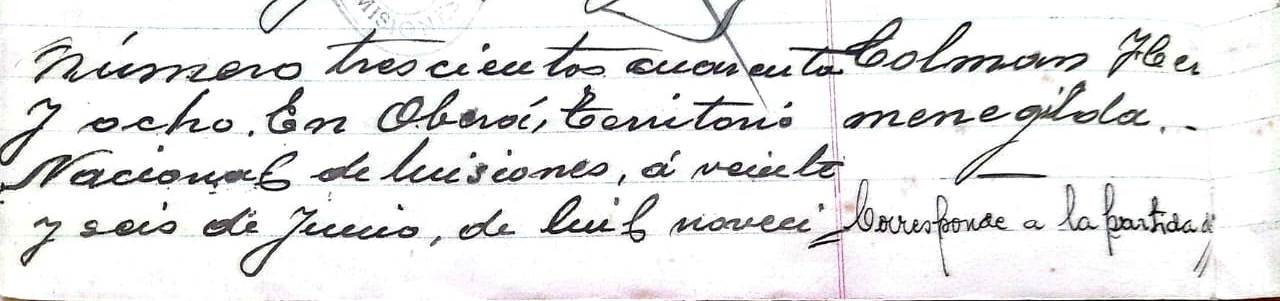 MISIONES
Número trescientos cuarenta
y ocho. En Oberá, Territorio
Nacional de Misiones, á veinte
y seis de Junio, de mil noveci
Colman Her
menegilda.
Corresponde a la partida d